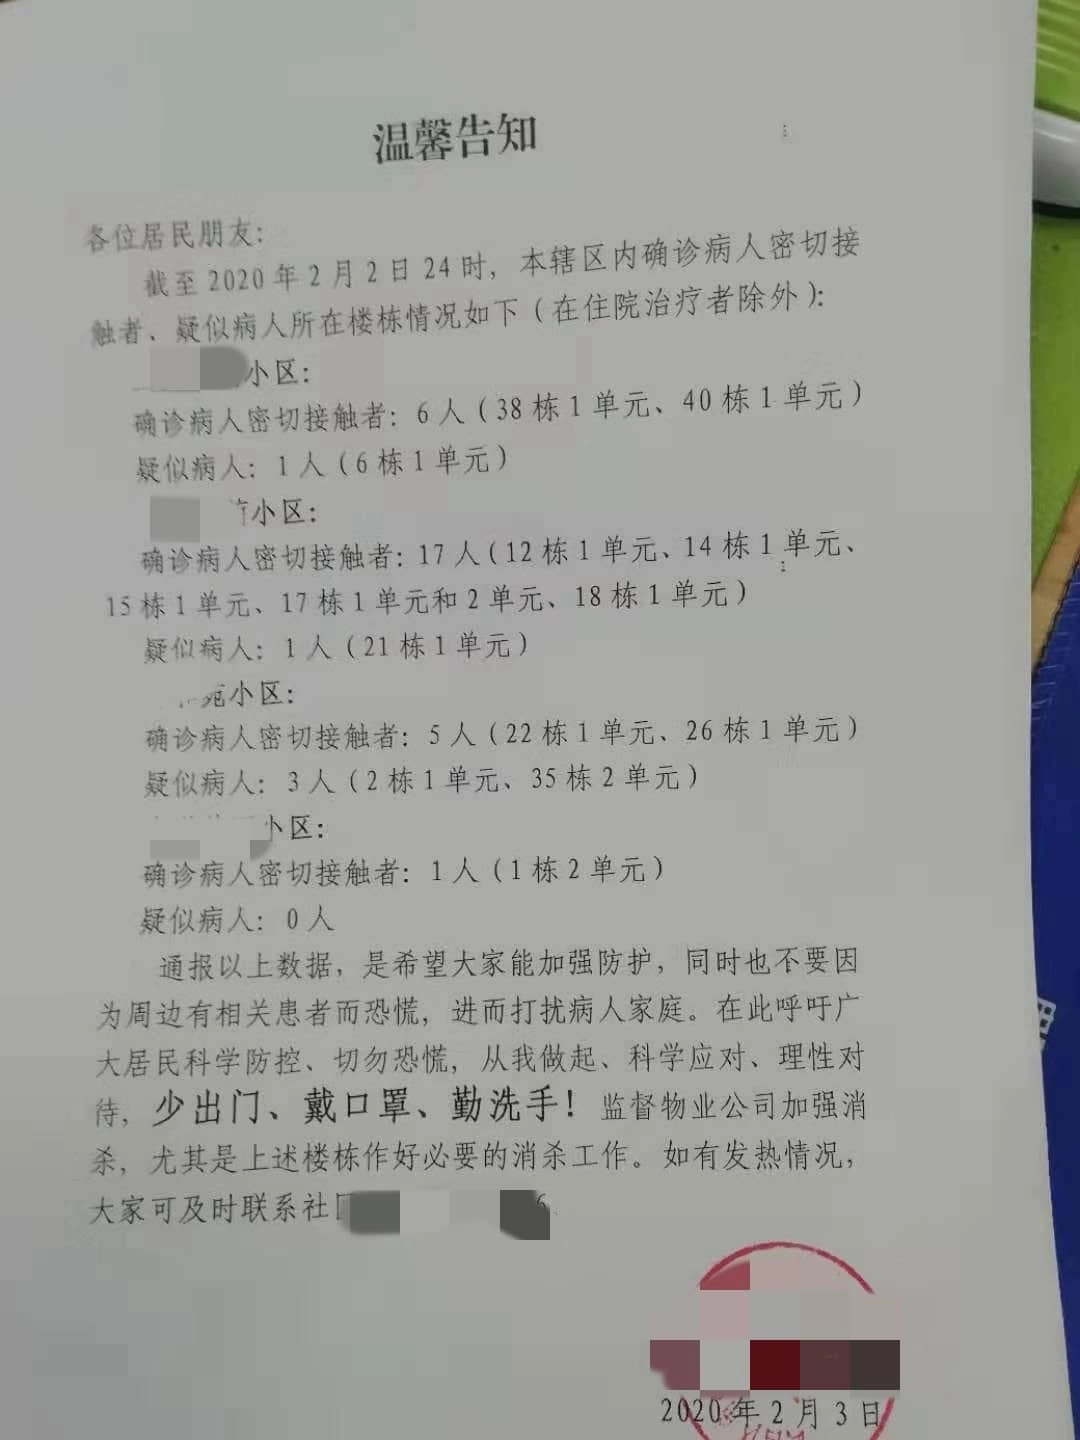 温馨告知
各位居民朋友：
截至2020年2月2日24时，本辖区内确诊病人密切接
触者、疑似病人所在楼栋情况如下（在住院治疗者除外）：
小区：
确诊病人密切接触者：6人（38栋1单元、40栋1单元）
疑似病人：1人（6栋1单元）
小区：
确诊病人密切接触者：17人（12栋1单元、14栋1单元、
15栋1单元、17栋1单元和2单元、18栋1单元）
疑似病人：1人（21栋1单元）
苑小区：
确诊病人密切接触者：5人（22栋1单元、26栋1单元）
疑似病人：3人（2栋1单元、35栋2单元）
小区：
确诊病人密切接触者：1人（1栋2单元）
疑似病人：0人
通报以上数据，是希望大家能加强防护，同时也不要因
为周边有相关患者而恐慌，进而打扰病人家庭。在此呼吁广
大居民科学防控、切勿恐慌，从我做起、科学应对、理性对
待，少出门、戴口罩、勤洗手！监督物业公司加强消
杀，尤其是上述楼栋作好必要的消杀工作。如有发热情况，
大家可及时联系社
2020年2月3日